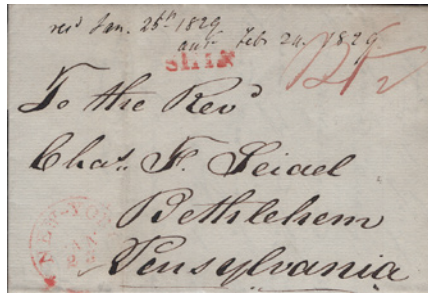 recd Jan. 26th 1829
ansd Feb 24. 1829.
SHIP
To the Revd
Chas. F. Seidel
Bethlehem
Pensylvania
NEW-YORK
JAN